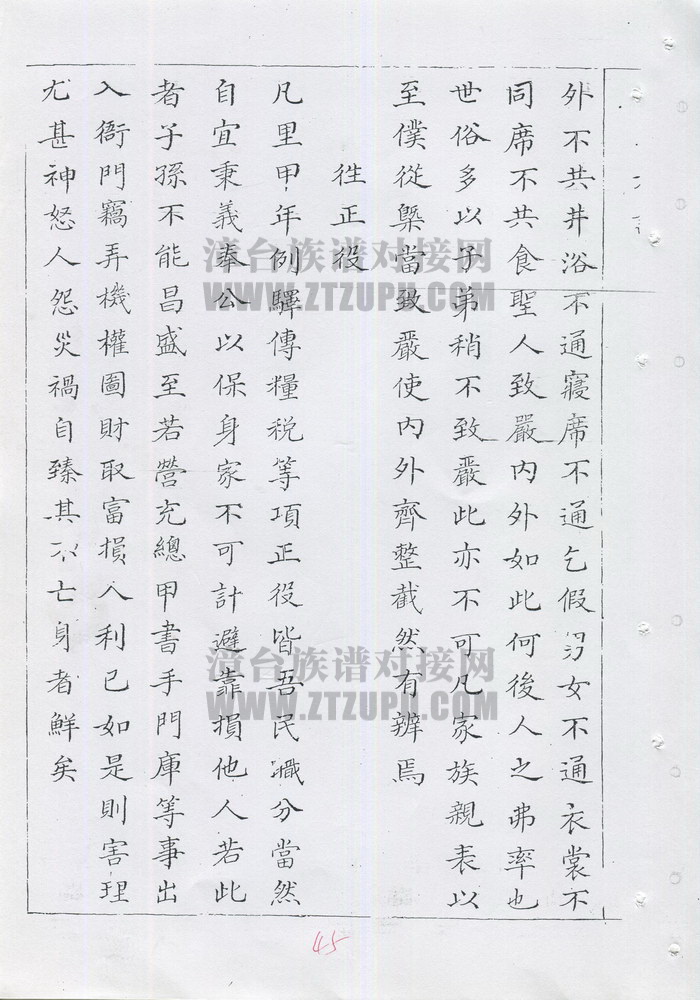 外不共井浴不通寢席不通乞假男女不通衣裳不
同席不共食聖人致嚴內外如此何後人之弗率也
世俗多以子弟稍不致嚴此亦不可凡家族親表以
至僕從槩當致嚴使內外齊整截然有辨焉
徃正役
凡里甲年例驛傳糧税等項正役皆吾民職分當然
自宜秉義奉公以保身家不可計避靠損他人若此
者子孫不能昌盛至若營充總甲書手門庫等事出
入衙門竊弄機權圖財取富損人利已如是則害理
尤甚神怒人怨災禍自臻其不亡身者鮮矣
漳台族谱对接网
WWW.ZTZUPU.COM
漳台族谱对接网
WWW.ZTZUPU.COM
45